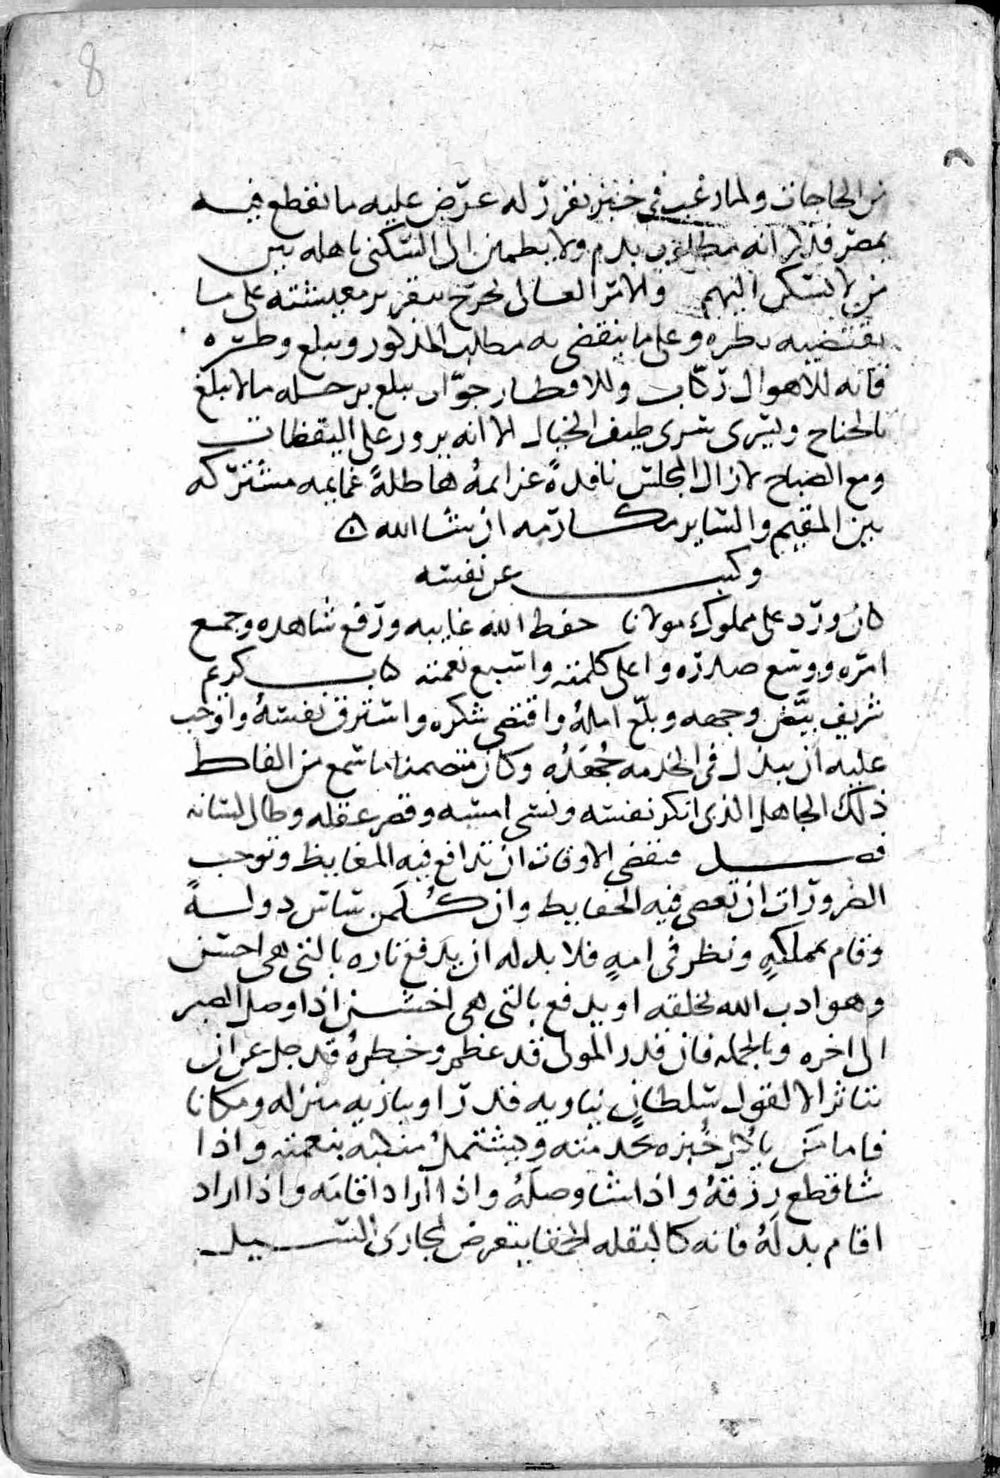 8
من الحاجات ولما رغب في خبز تقرر له عرض عليه ما نقطع فيه
بمصر فذكر انه مطلوب بدم ولا يطمئن الى السكنى باهله بين
من لا يسكن اليهم والامر العالى يخرج بتقرير معيشته على ما
يقتضيه نظره وعلى ما ينقضى به مطلب المذكور ويبلغ وطره
فانه للاهوال ركاب وللاقطار جواب يبلغ برحله ما لا يبلغ
بالجناح ويسرى سرى طيف الخيال الا انه يزور على اليقظات
ومع الصباح لا زال المجلس نافذة عزايمه هاطلة غمايمه مشتركه
بين المقيم والساير مكارمه ان شا الله
وكتب عن نفسه
كان ورد على مملوك مولانا حفظ الله غايبه ورفع شاهده وجمع
امره ووسع صدره واعلى كلمته واسبغ نعمته كتاب كريم
شريف بيض وجهه وبلغ امله واقتضى شكره واسترق نفسه واوجب
عليه ان يبذل في الخدمه جهده وكان متضمنا ما سمع من الفاظ
ذلك الجاهل الذى انكر نفسه ونسى امسه وقصر عقله وطال لسانه
فصل تقتضى الاوقات ان تدافع فيه المغايظ وتوجب
الضرورات ان تعصى فيه الحفايظ وان كل من ساس دولة
وقام بمملكة ونظر في امة فلا بد له ان يدفع تاره بالتى هى احسن
وهو ادب الله لخلقه او يدفع بالتى هى اخشن اذا وصل الصبر
الى اخره وبالجمله فان قدر المولى قد عظم وخطره قد جل عن ان
يتاثر الا لقول سلطان يناويه قدرا ويوازيه منزله ومكانا
فاما من ياكل خبزه بخدمته ويشتمل منكبه بنعمته واذا
شا قطع رزقه واذا شا وصله واذا اراد اقامه واذا اراد
اقام بدله فانه كالبقله الحمقا يتعرض لمجارى السيل